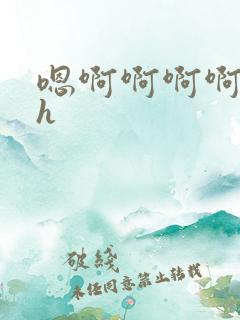 嗯啊啊啊啊
h
破线
未经同意禁止转载